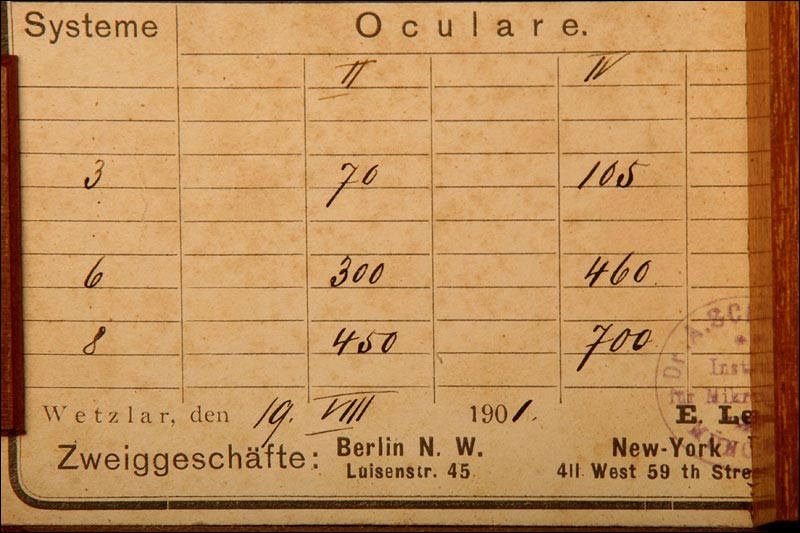 Systeme Oculare.
II IV
3 70 105
6 300 460
8 450 700
Wetzlar, den 19. VIII 1901. E. Le
Zweiggeschäfte: Berlin N. W. New-York
Luisenstr. 45 411 West 59 th Stre
Dr. A. SC
Inst
für Mikr
MÜNC